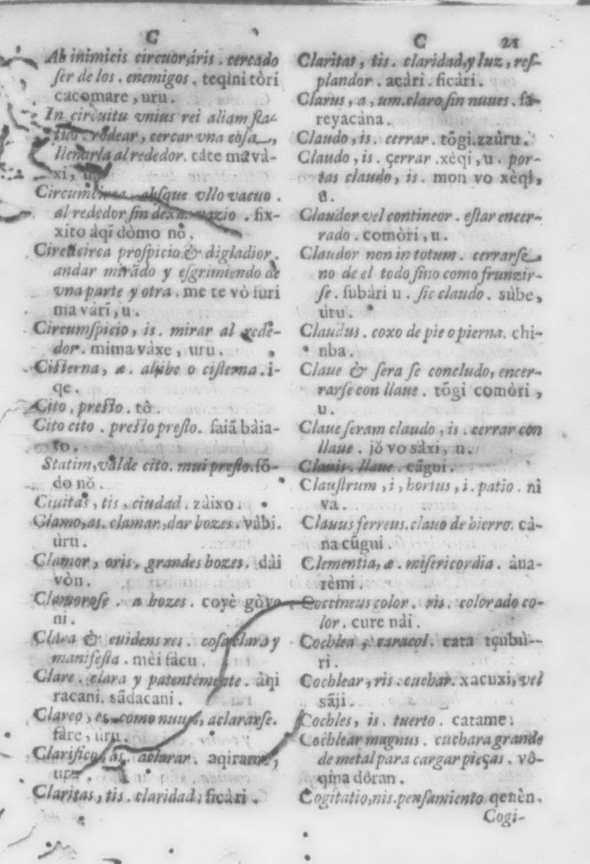 C
C 21
Ab inimicis circuoráris . cercado
ser de los . enemigos . teqini tòri
cacomare, uru.
In circuitu vnius rei aliam sta-
tuo . rodear, cercar vna cosa,
llenarla al rededor. cáte mavà-
xi,
Circumcirca absque vllo vacuo .
al rededor sin dexar vazio . fix-
xito áqi dòmo nò.
Circucirca prospicio & digladior.
andar mirãdo y esgrimiendo de
vna parte y otra . me te vò furi
ma vàri, u.
Circumspicio, is . mirar al rede-
dor . mima vàxe, uru.
Cisterna, æ . algibe o cisterna . i-
qe.
Cito, presto. tò.
Cito cito . presto presto. saiã bàia-
to.
Statim, valde cito. mui presto. sô-
do nò.
Ciuitas, tis, ciudad. zàixo.
Clamo, as. clamar, dar bozes. vàbi.
ùru.
Clamor, oris, grandes bozes. dài
vòn.
Clamorose . a bozes. coyè gòvo
ni.
Clara & euidens res . cosa clara y
manifesta . mèi fàcu.
Clare . clara y patentemente . àqi
racani. sãdacani.
Clareo, es. como nuues, aclararse.
fàre, ùru.
Clarifico, as. aclarar . aqirame,
Claritas, tis . claridad, ficàri .
Claritas, tis. claridad, y luz, res-
plandor . acàri. ficàri.
Clarus, a, um. claro sin nuues. fa-
reyacàna.
Claudo, is. cerrar. tõgi. zzùru.
Claudo, is . çerrar . xèqi, u . por-
tas claudo, is. mon vo xèqi,
u.
Claudor vel contineor . estar encer-
rado. comòri, u.
Claudor non in totum. cerrarse
no de el todo sino como frunzir-
se. subàri u . sic claudo. sùbe,
ùru.
Claudus. coxo de pie o pierna. chi-
nba.
Claue & sera se concludo, encer-
rarse con llaue. tõgi comòri,
u.
Claue seram claudo, is . cerrar con
llaue . jõ vo sàxi, u.
Clauis . llaue . cãgui.
Claustrum, i, hortus, i. patio. ni
va.
Clauus ferreus. clauo de hierro. cà-
na cũgui.
Clementia, æ. misericordia. àua-
rèmi.
Coccineus color . ris. colorado co-
lor. cure nài.
Cochlea, caracol. cata tçubù-
ri.
Cochlear, ris. cuchar. xacuxi, vel
sãji.
Cochles, is. tuerto. catame.
Cochlear magnus . cuchara grande
de metal para cargar pieças. vò-
qina dòran.
Cogitatio, nis. pensamiento qenèn.
Cogi-